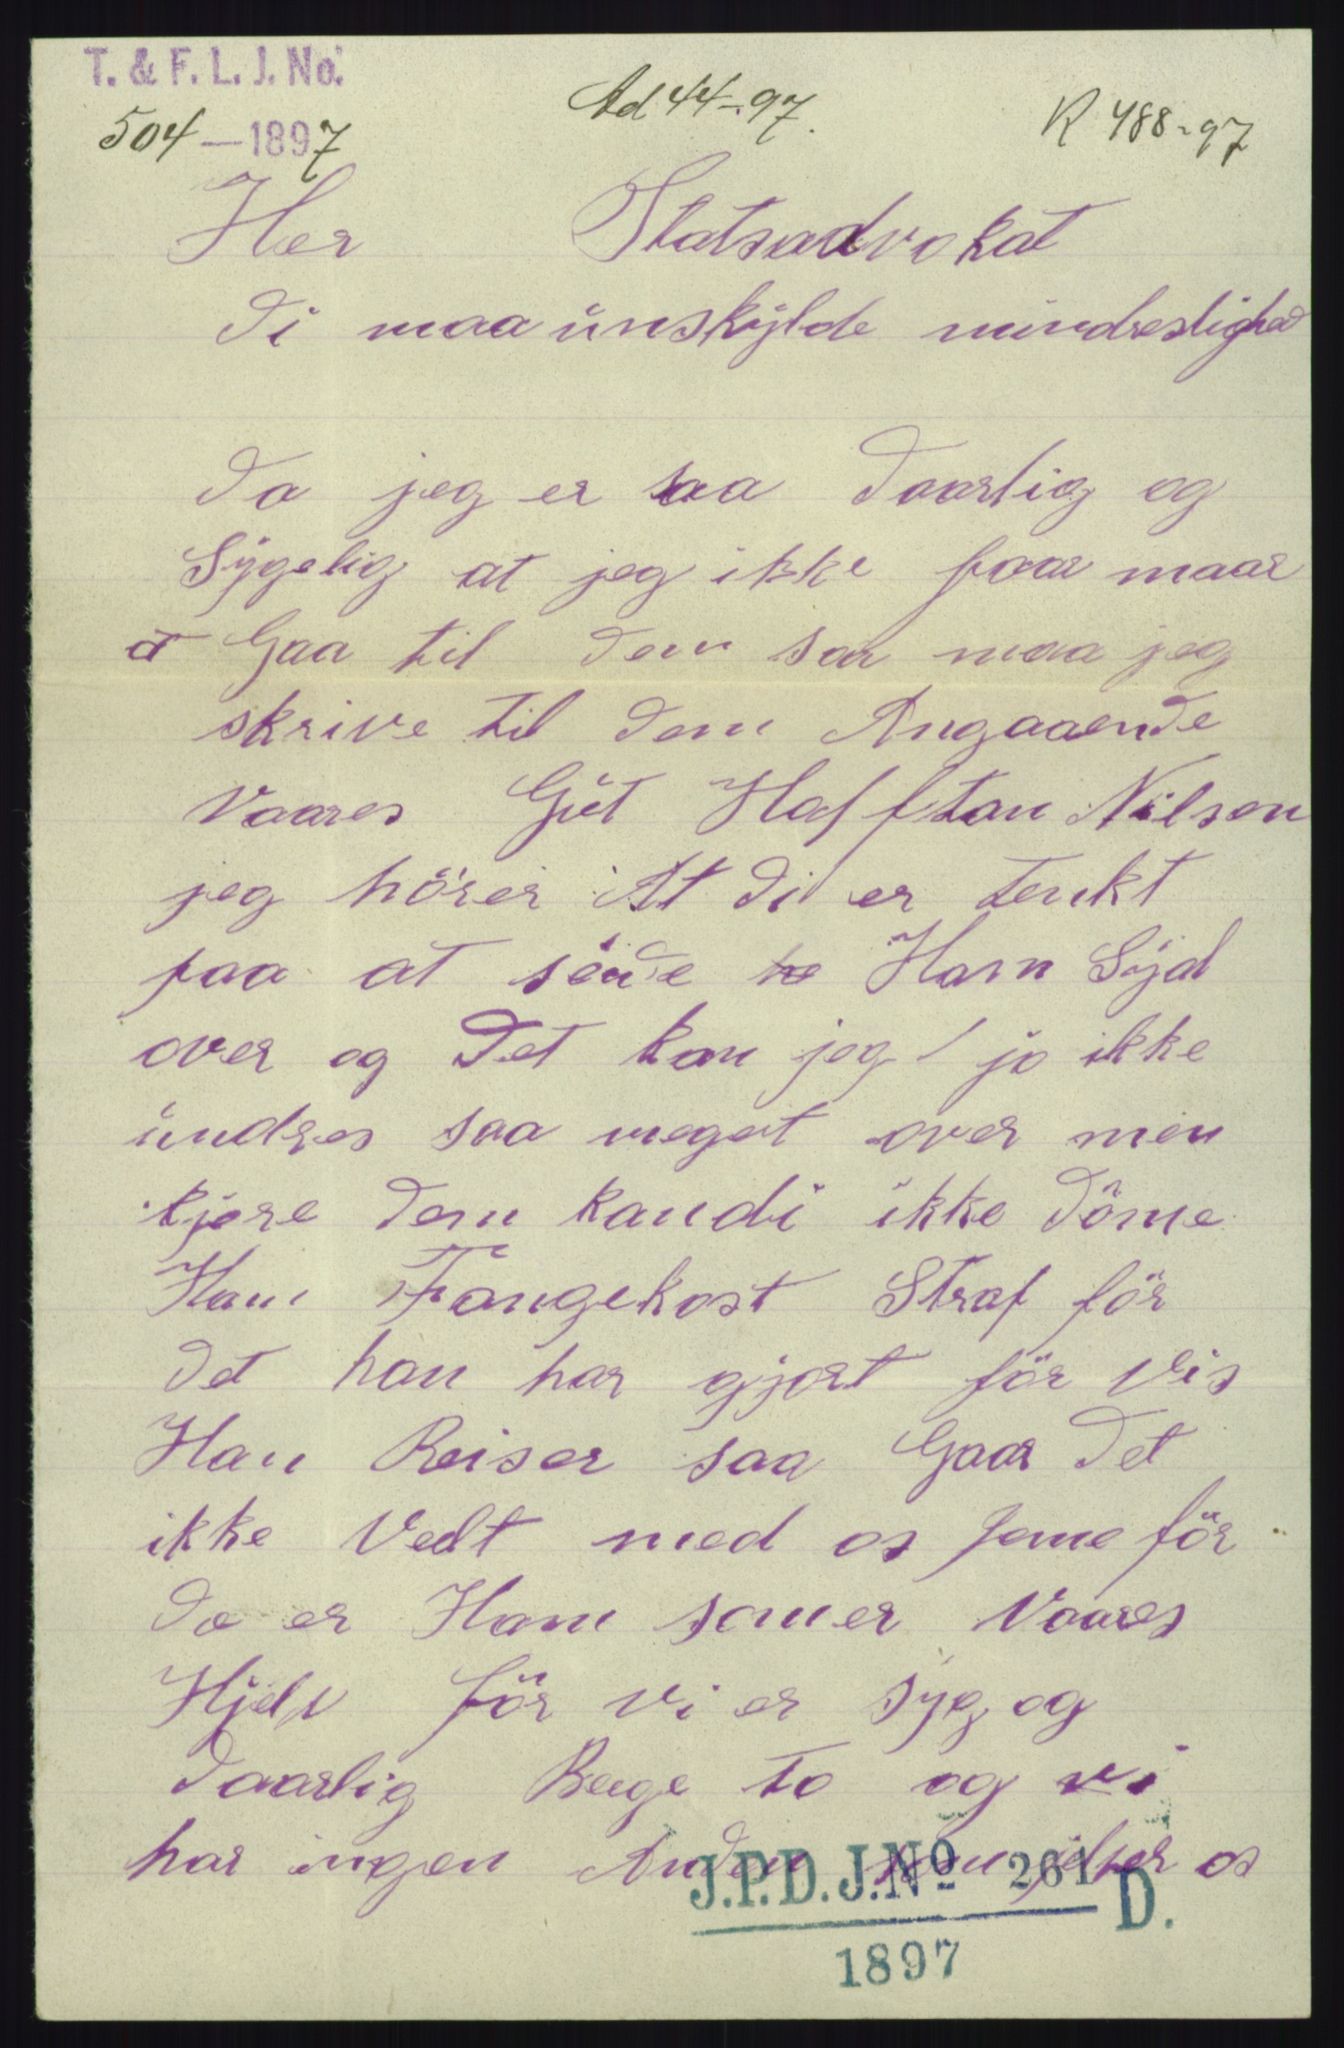 T. & F. L. J. No.
504—1897
Ad 44-97.
R 488-97
Her Statsadvokat
Di maa ünskÿlde mindreslighed
Da jeg er saa Daarlig og
Sÿgelig at jeg ikke faar maar
at Gaa til Dem saa maa jeg
skrive til Dem Angaaende
Vaares Güt Halftan Nilsen
jeg hörer At Di er tenkt
paa at sende Ham Sÿd
over og Det kan jeg jo ikke
ündres saa meget over men
kjere Dem kandi ikke Döme
Ham Fangekost Straf för
Det han har gjort för Vis
Han Reiser saa Gaar Det
ikke Vedt med os jeme för
De er Ham somer Vaares
Hjelp för vi er sÿg og
Daarlig Bege to og vi
har ingen Anden som jelper os
J.P.D.J.No 261 D.
1897